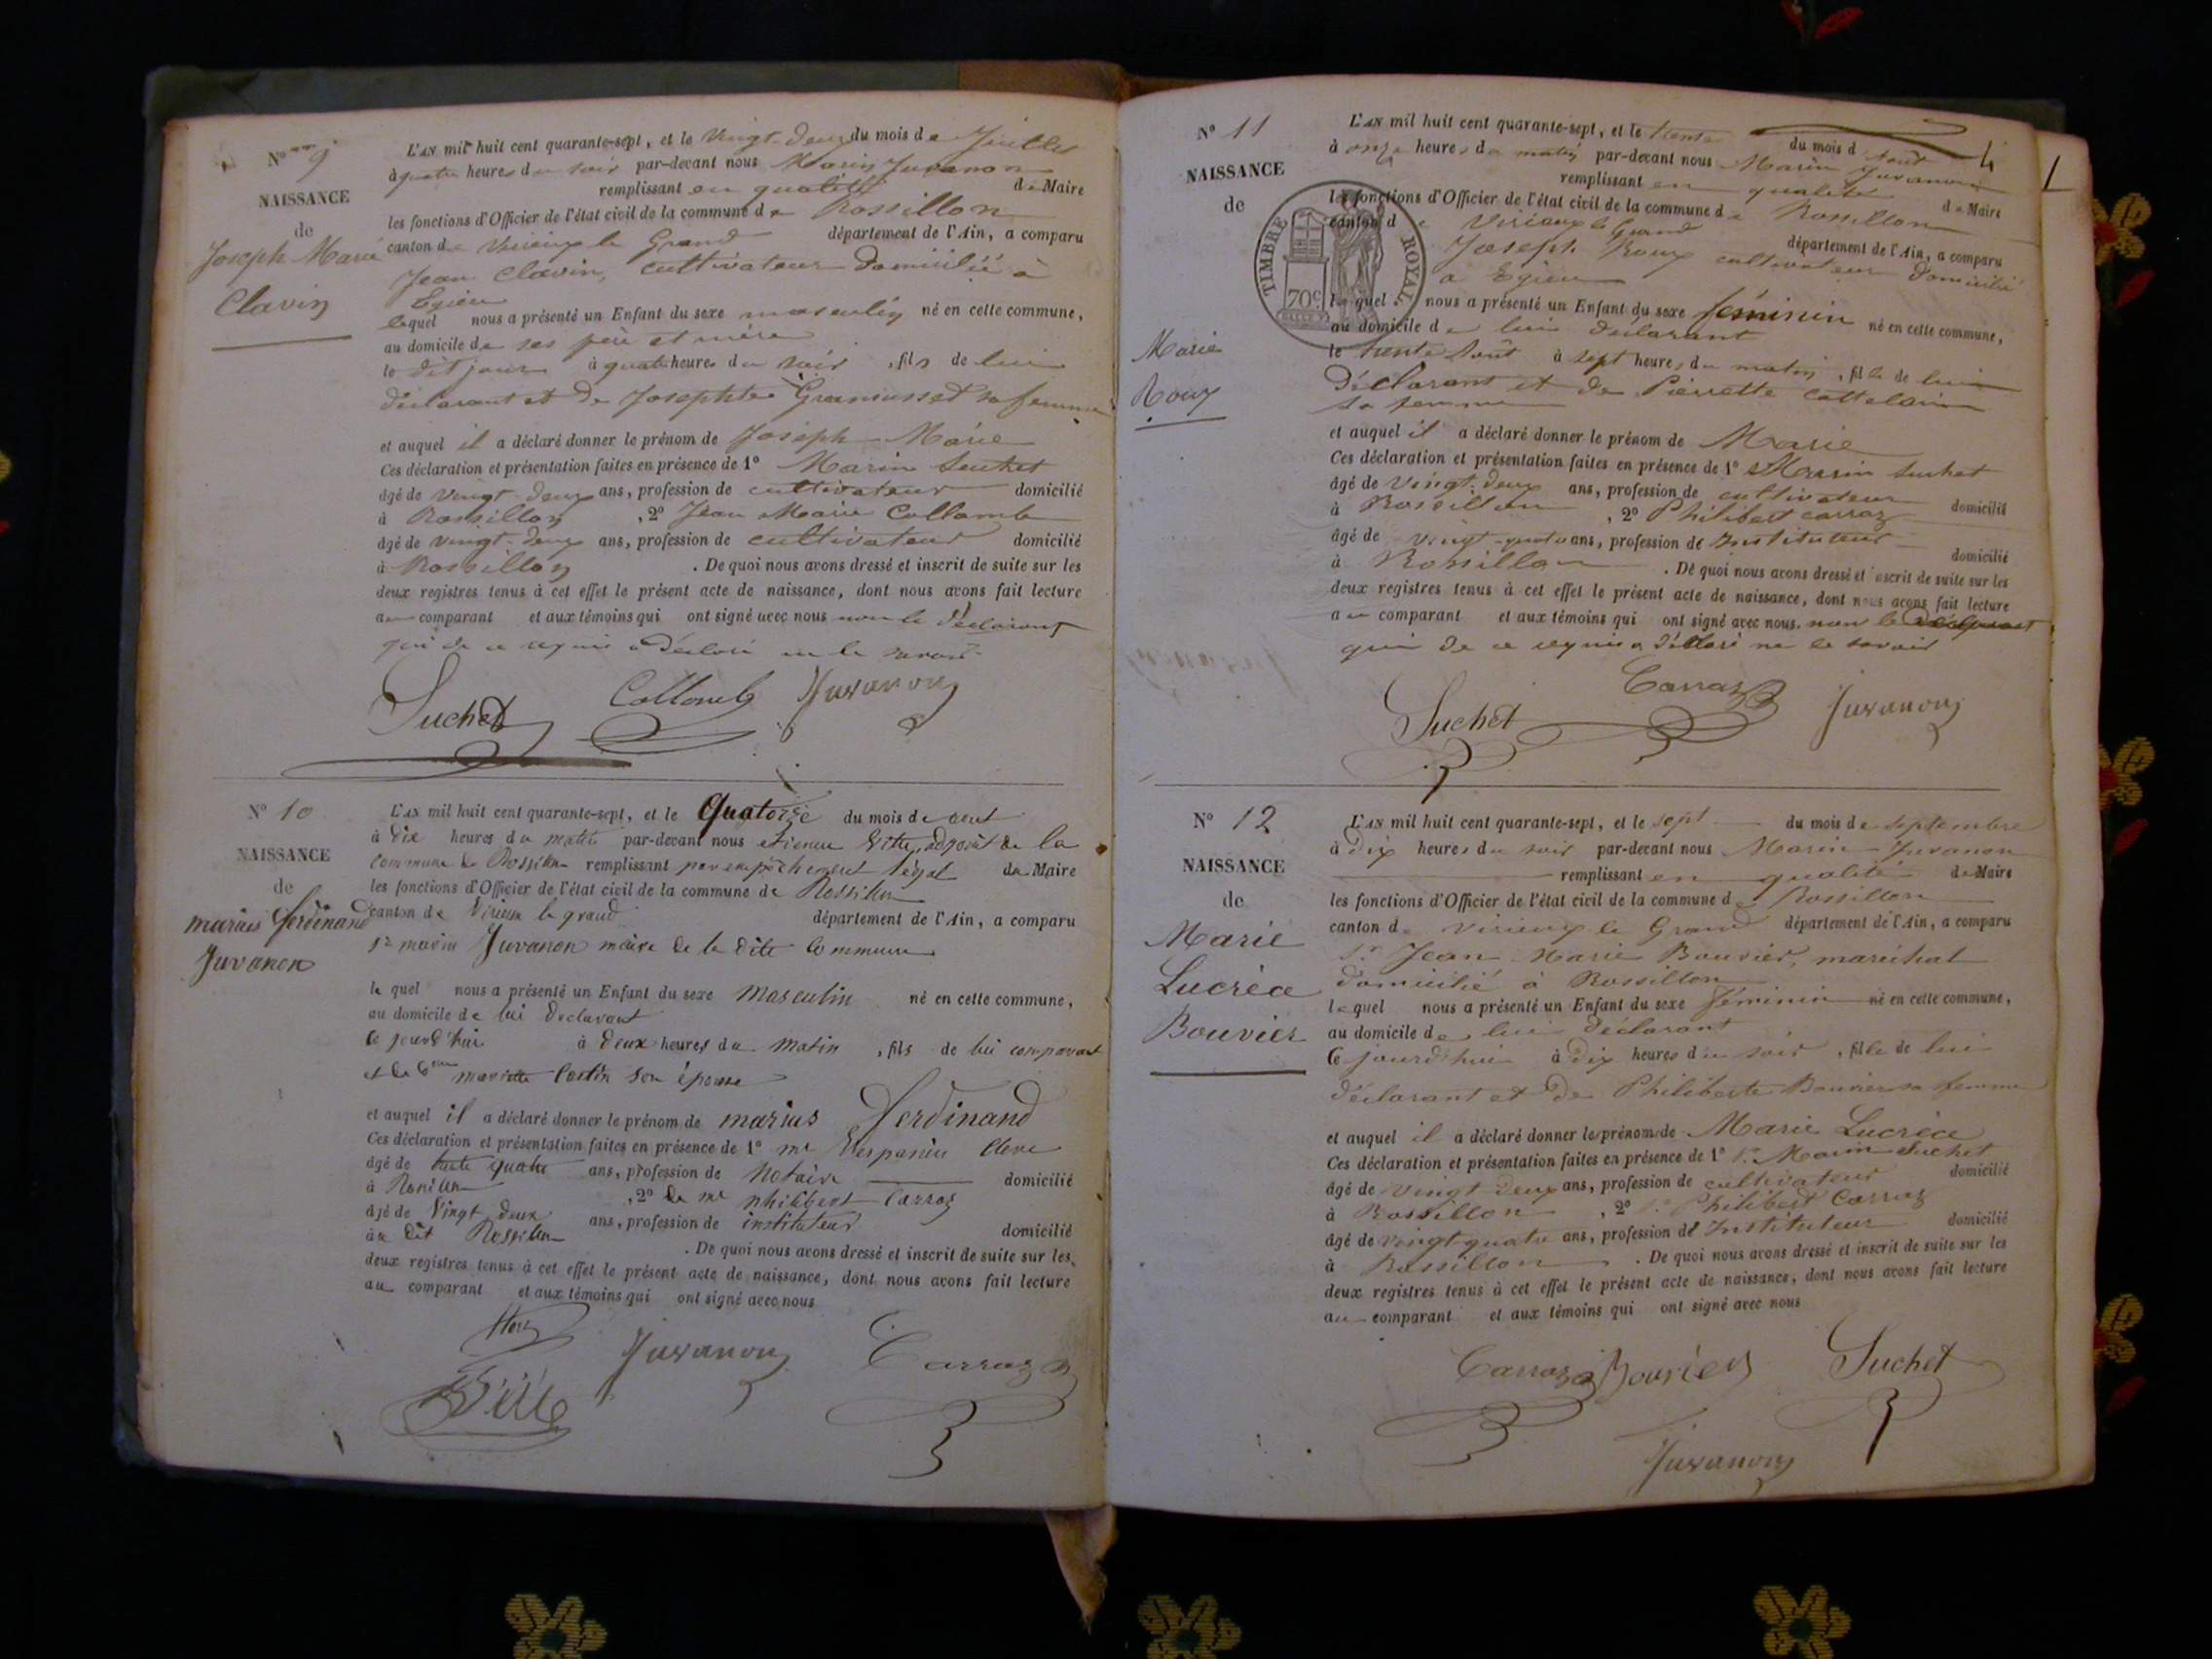 N° 9
NAISSANCE
de
Joseph Marie
Clavin
L'AN mil huit cent quarante-sept, et le vingt-deux du mois de Juillet
à quatre heures du soir par-devant nous Marin Juvanon
remplissant en qualité de Maire
les fonctions d'Officier de l'état civil de la commune de Rossillon
canton de Virieux le Grand département de l'Ain, a comparu
Jean Clavin, cultivateur domicilié à
Egieu
lequel nous a présenté un Enfant du sexe masculin né en cette commune,
au domicile de ses père et mère
le dit jour à quatre heures du soir, fils de lui
déclarant et de Josephte sa femme
et auquel il a déclaré donner le prénom de Joseph Marie
Ces déclaration et présentation faites en présence de 1° Marin Suchet
âgé de vingt-deux ans, profession de cultivateur domicilié
à Rossillon, 2° Jean Marie Collomb
âgé de vingt-deux ans, profession de cultivateur domicilié
à Rossillon. De quoi nous avons dressé et inscrit de suite sur les
deux registres tenus à cet effet le présent acte de naissance, dont nous avons fait lecture
au comparant et aux témoins qui ont signé avec nous non le déclarant
qui de ce requis a déclaré ne le savoir
Suchet Collomb Juvanon
N° 10
NAISSANCE
de
marius ferdinand
Juvanon
L'AN mil huit cent quarante-sept, et le Quatorze du mois de aout
à dix heures du matin par-devant nous etienne adjoint de la
commune de Rossillon remplissant par empêchement légal du Maire
les fonctions d'Officier de l'état civil de la commune de Rossillon
canton de Virieux le grand département de l'Ain, a comparu
sr marin Juvanon maire de la dite commune
le quel nous a présenté un Enfant du sexe masculin né en cette commune,
au domicile de lui declarant
ce jourd'hui à deux heures du matin, fils de lui comparant
et de son épouse
et auquel il a déclaré donner le prénom de marius ferdinand
Ces déclaration et présentation faites en présence de 1° me
âgé de trente quatre ans, profession de Notaire domicilié
à Rossillon, 2° de me philibert Carraz
âgé de Vingt deux ans, profession de instituteur domicilié
au dit Rossillon. De quoi nous avons dressé et inscrit de suite sur les
deux registres tenus à cet effet le présent acte de naissance, dont nous avons fait lecture
au comparant et aux témoins qui ont signé avec nous
Juvanon Carraz
N° 11
NAISSANCE
de
Marie
Roux
TIMBRE ROYAL
70c
L'AN mil huit cent quarante-sept, et le trente du mois d'Août
à onze heures du matin par-devant nous Marin Juvanon
remplissant en qualité de Maire
les fonctions d'Officier de l'état civil de la commune de Rossillon
canton de Virieux le Grand département de l'Ain, a comparu
Joseph Roux cultivateur domicilié
à Egieu
lequel nous a présenté un Enfant du sexe féminin né en cette commune,
au domicile de lui déclarant
le trente Août à sept heures du matin, fille de lui
déclarant et de Pierrette Cattelain
sa femme
et auquel il a déclaré donner le prénom de Marie
Ces déclaration et présentation faites en présence de 1° Marin Suchet
âgé de vingt-deux ans, profession de cultivateur domicilié
à Rossillon, 2° Philibert Carraz
âgé de vingt-quatre ans, profession de Instituteur domicilié
à Rossillon. De quoi nous avons dressé et inscrit de suite sur les
deux registres tenus à cet effet le présent acte de naissance, dont nous avons fait lecture
au comparant et aux témoins qui ont signé avec nous. non le déclarant
qui de ce requis a déclaré ne le savoir
Suchet Carraz Juvanon
N° 12
NAISSANCE
de
Marie
Lucrèce
Bouvier
L'AN mil huit cent quarante-sept, et le sept du mois de septembre
à dix heures du soir par-devant nous Marin Juvanon
remplissant en qualité de Maire
les fonctions d'Officier de l'état civil de la commune de Rossillon
canton de Virieux le Grand département de l'Ain, a comparu
Sr Jean Marie Bouvier, maréchal
domicilié à Rossillon
lequel nous a présenté un Enfant du sexe féminin né en cette commune,
au domicile de lui déclarant
ce jourd'hui à dix heures du soir, fille de lui
déclarant et de Philiberte Bouvier sa femme
et auquel il a déclaré donner les prénoms de Marie Lucrèce
Ces déclaration et présentation faites en présence de 1° Sr Marin Suchet
âgé de vingt deux ans, profession de cultivateur domicilié
à Rossillon, 2° Sr Philibert Carraz
âgé de vingt quatre ans, profession de Instituteur domicilié
à Rossillon. De quoi nous avons dressé et inscrit de suite sur les
deux registres tenus à cet effet le présent acte de naissance, dont nous avons fait lecture
au comparant et aux témoins qui ont signé avec nous
Carraz Bouvier Suchet
Juvanon